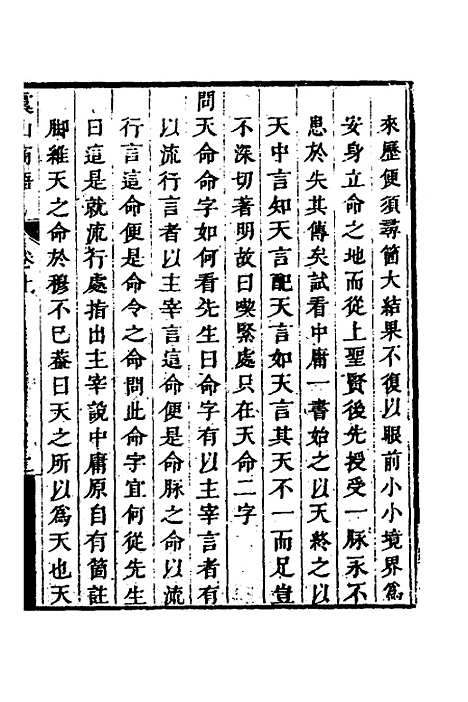 來歷便須尋箇大結果不復以眼前小小境界為
安身立命之地而從上聖賢後先授受一脉永不
患於失其傳矣試看中庸一書始之以天終之以
天中言知天言配天言如天言其天不一而足豈
不深切著明故曰喫緊處只在天命二字
問天命命字如何看先生曰命字有以主宰言者有
以流行言者以主宰言這命便是命脉之命以流
行言這命便是命令之命問此命字宜何從先生
曰這是就流行處指出主宰說中庸原自有箇註
脚維天之命於穆不已葢曰天之所以為天也天
虞山商語